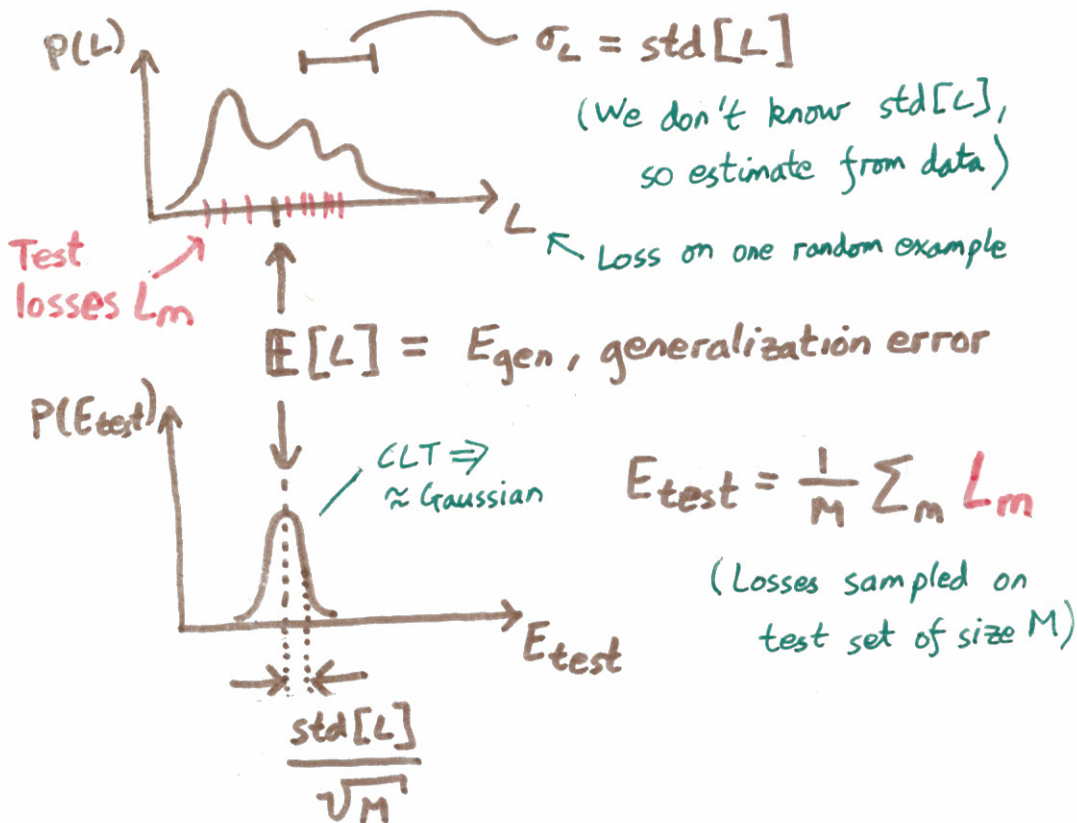 P(L)
σ_L = std[L]
(We don't know std[L],
so estimate from data)
L
Loss on one random example
Test
losses L_m
𝔼[L] = E_gen, generalization error
P(E_test)
CLT ⇒
≈ Gaussian
E_test = 1/M Σ_m L_m
(Losses sampled on
test set of size M)
E_test
std[L]
√M